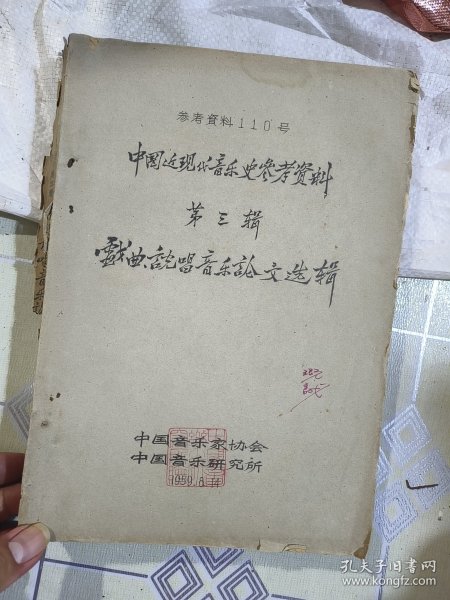 参考資料110号
中国近现代音乐史参考资料
第三辑
戲曲、說唱音乐論文选辑
中国音乐家协会
中国音乐研究所
1959.6.
孔夫子旧书网
www.kongfz.com